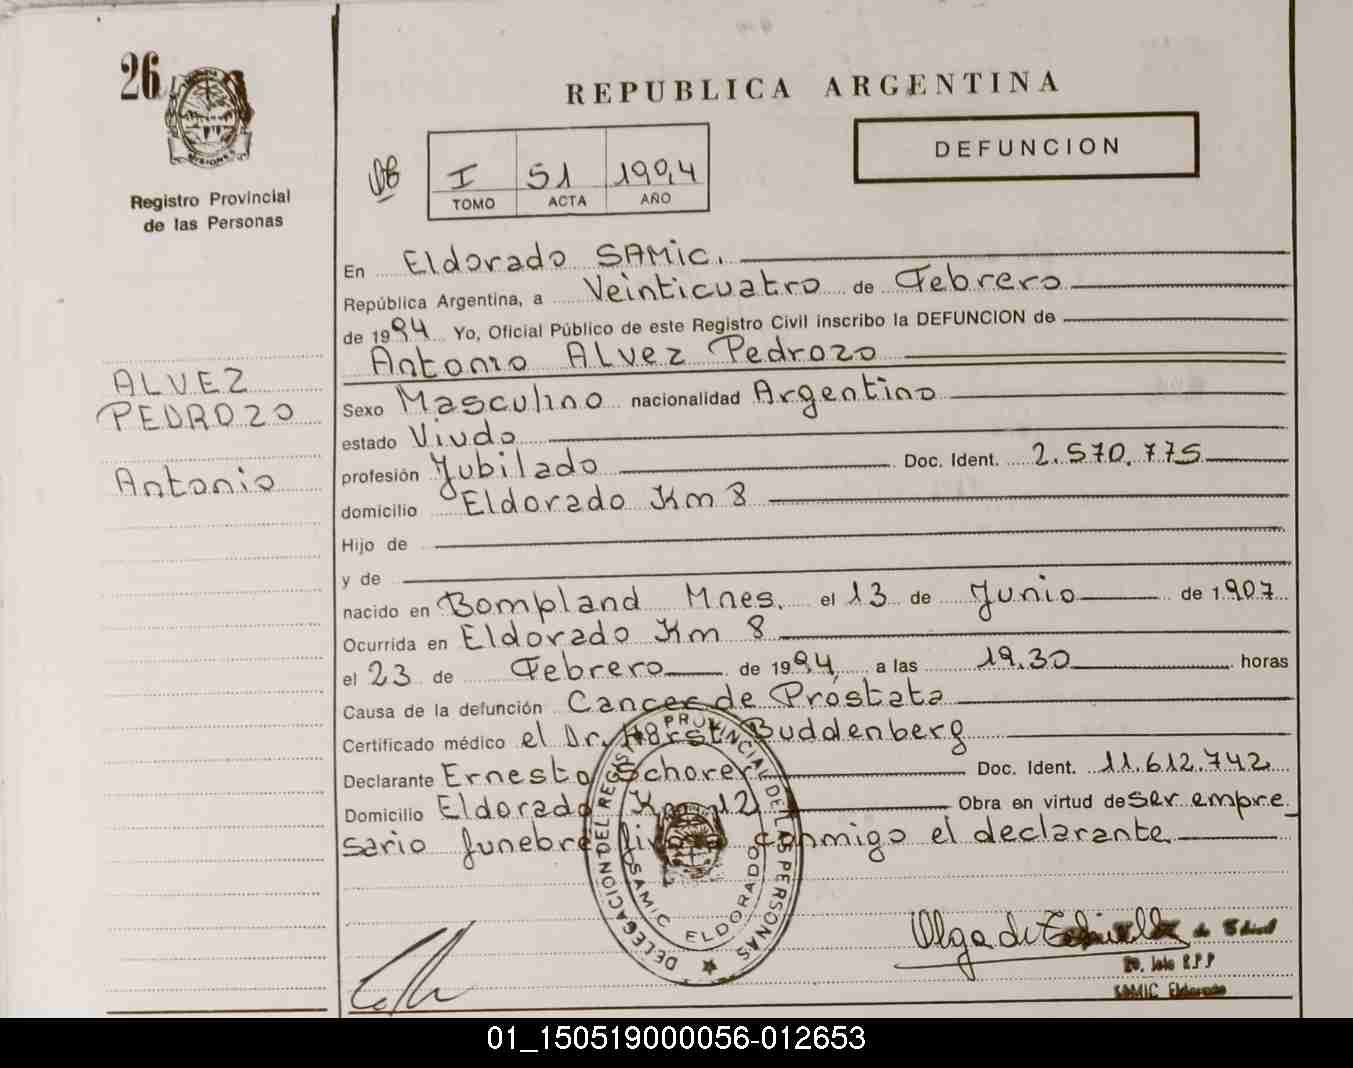 26
MISIONES
Registro Provincial
de las Personas
ALVEZ
PEDROZO
Antonio
REPUBLICA ARGENTINA
DEFUNCION
I 51 1994
TOMO ACTA AÑO
En Eldorado SAMic.
República Argentina, a Veinticuatro de Febrero
de 1994 Yo, Oficial Público de este Registro Civil inscribo la DEFUNCION de
Antonio ALVEZ Pedrozo
Sexo Masculino nacionalidad Argentino
estado Viudo
profesión Jubilado Doc. Ident. 2.570.775
domicilio Eldorado Km 8
Hijo de
y de
nacido en Bompland Mnes. el 13 de Junio de 1.907
Ocurrida en Eldorado Km 8
el 23 de Febrero de 1994, a las 19.30 horas
Causa de la defunción Cancer de Prostata
Certificado médico el Dr. Horst Buddenberg
Declarante Ernesto Schorer Doc. Ident. 11.612.742
Domicilio Eldorado Km 12 Obra en virtud de ser empre
sario funebre firma conmigo el declarante
DELEGACION DEL REGISTRO PROVINCIAL DE LAS PERSONAS
SAMIC ELDORADO
Olga de
SAMIC Eldorado
01_150519000056-012653